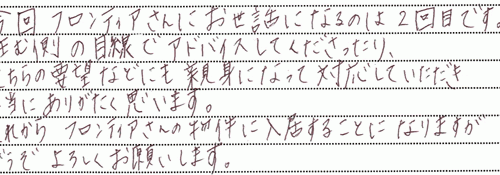 今回フロンティアさんにお世話になるのは2回目です。
住む側の目線でアドバイスしてくださったり、
こちらの要望などにも親身になって対応していただき
本当にありがたく思います。
これからフロンティアさんの物件に入居することになりますが
どうぞよろしくお願いします。